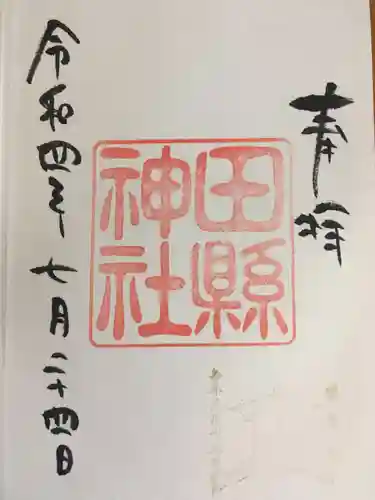 奉拝
田縣
神社
令和四年七月二十四日